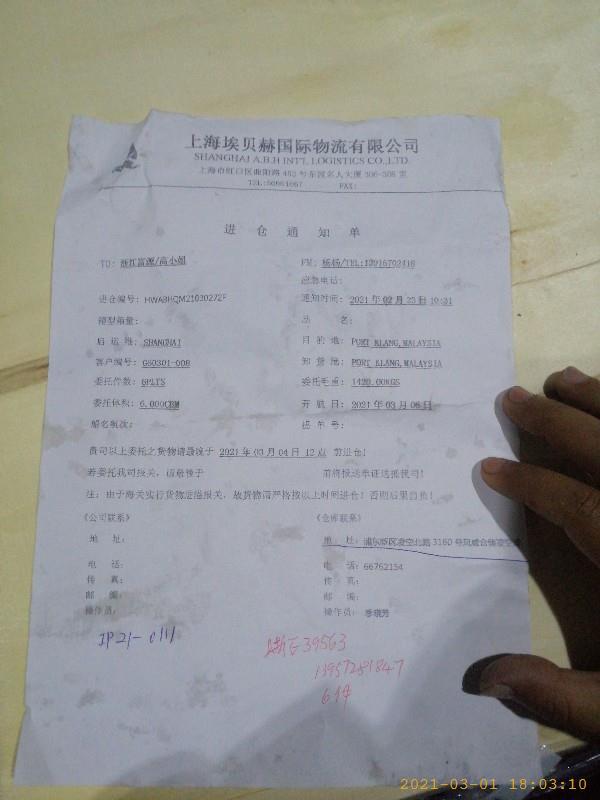 上海埃贝赫国际物流有限公司
SHANGHAI A.B.H INT'L LOGISTICS CO.,LTD.
上海市虹口区曲阳路 452 号东润名人大厦 306-308 室
TEL: FAX:
进 仓 通 知 单
TO: 浙江富源/高小姐 FM: 杨杨/TEL:13916702416
应急电话:
进仓编号: HWABHQM21030272F 通知时间: 2021 年 02 月 23 日 10:31
箱型箱量: 品 名:
启 运 港: SHANGHAI 目 的 地: PORT KLANG,MALAYSIA
客户编号: G60301-008 卸 货 港: PORT KLANG,MALAYSIA
委托件数: 6PLTS 委托毛重: 1420.00KGS
委托体积: 6.000CBM 开 航 日: 2021 年 03 月 06 日
船名航次: 提 单 号:
贵司以上委托之货物请最晚于 2021 年 03 月 04 日 12 点 前进仓!
若委托我司报关, 请最晚于 前将报送单证送抵我司!
注: 由于海关实行货物运抵报关, 故货物需严格按以上时间进仓! 否则后果自负!
《公司联系》 《仓库联系》
地 址: 地 址: 浦东新区凌空北路 3160 号
电 话: 电 话: 66762154
传 真: 传 真:
邮 编: 邮 编:
操作员: 操作员: 季晓芳
JP21-0111
39563
13957281847
6件
2021-03-01 18:03:10